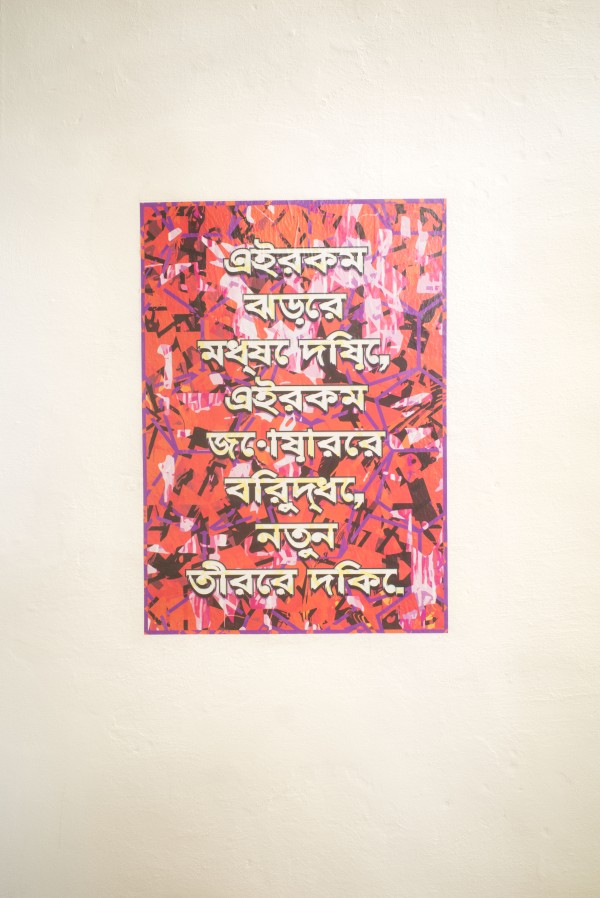 এইরকম
ঝড়রে
মধ্‌যে দয়িে,
এইরকম
জোয়াররে
বরিুদ্‌ধে,
নতুন
তীররে দকিে.